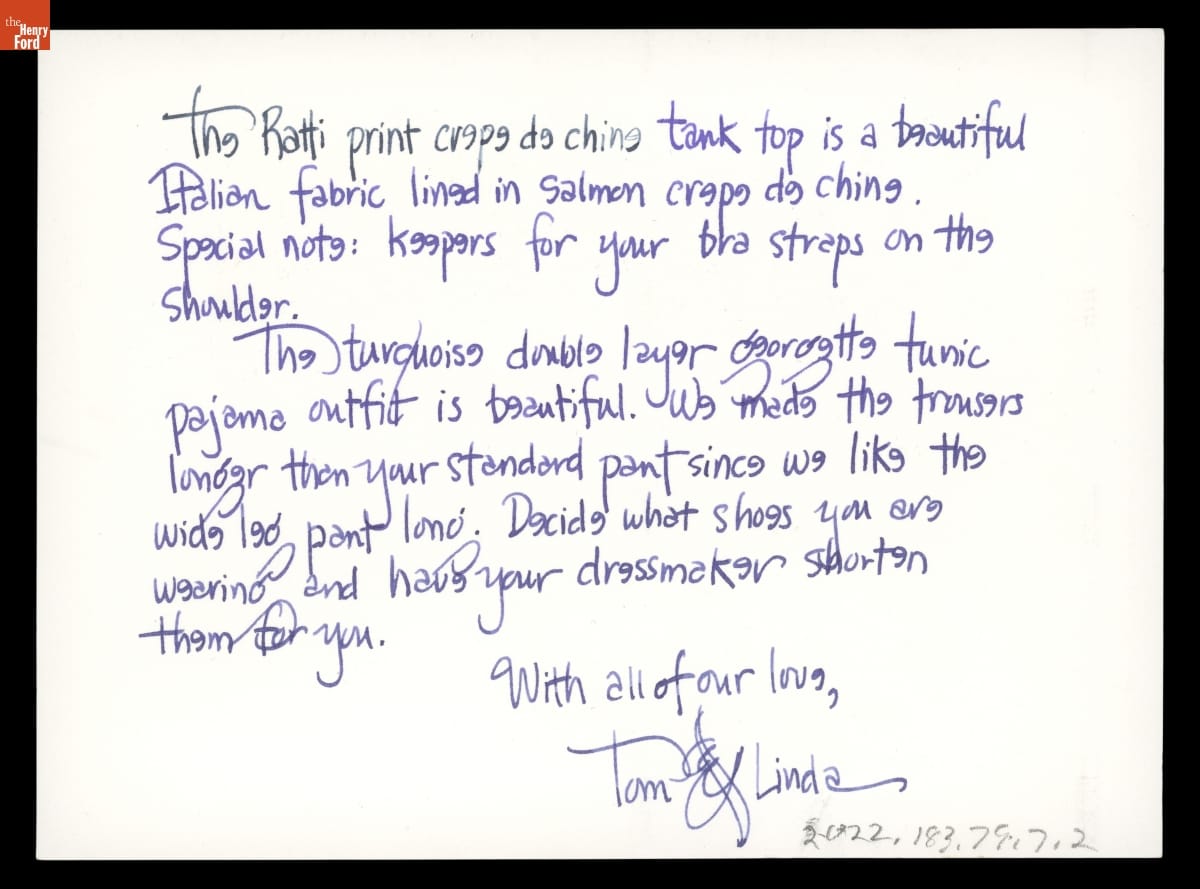 the
Henry
Ford
The Ratti print crepe de chine tank top is a beautiful
Italian fabric lined in salmon crepe de chine.
Special note: keepers for your bra straps on the
shoulder.
The turquoise double layer georgette tunic
pajama outfit is beautiful. We made the trousers
longer then your standard pant since we like the
wide leg pant long. Decide what shoes you are
wearing and have your dressmaker shorten
them for you.
With all of our love,
Tom & Linda
2022.183.79.7.2